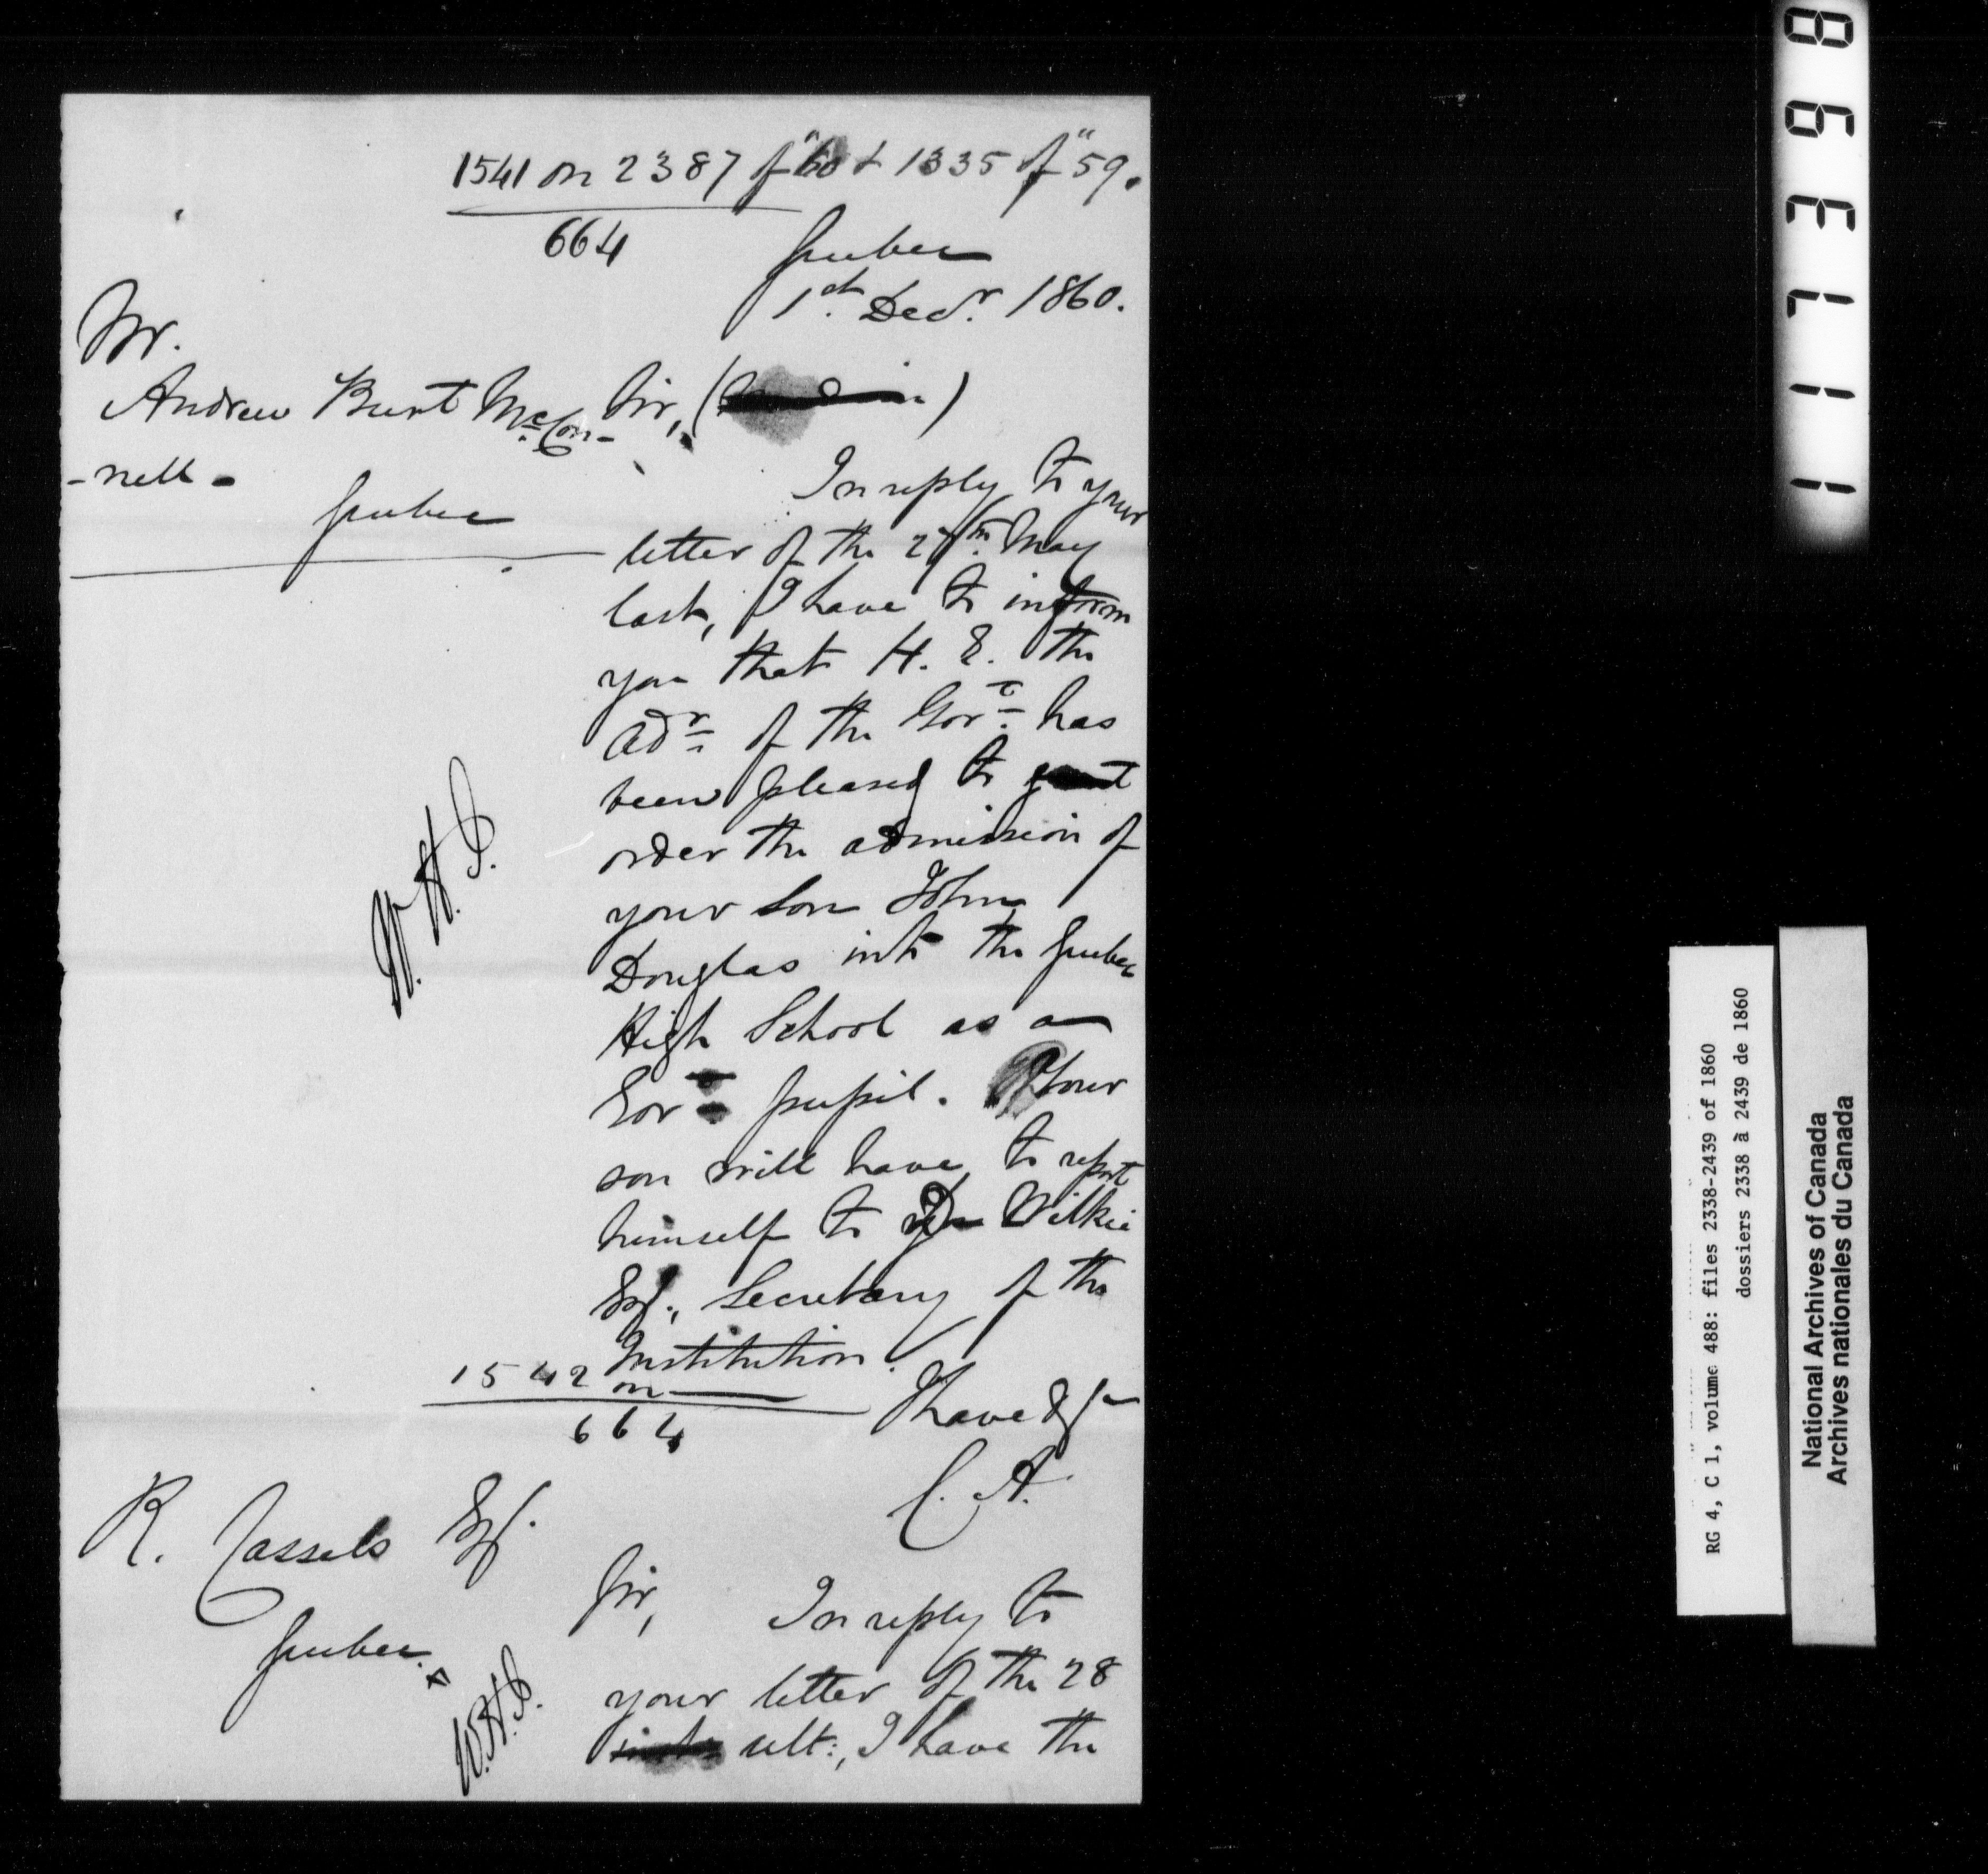 1541 on 2387 of "60 & 1335 of "59.
664
Quebec
1st. Decr. 1860.
Mr.
Andrew Burt McCon-
-nell -
Quebec
Sir,
In reply to your
letter of the 27th. May
last, I have to inform
you that H. E. the
Adr. of the Govt. has
been pleased to grant
order the admission of
your son John
Douglas into the Quebec
High School as a
Govt. pupil. Your
son will have to report
himself to Dr Wilkie
Esq., Secretary of the
Institution.
I have &c
C. A.
W. H. J.
1542 on
664
R. Cassels Esq.
Quebec.
W. H. J.
Sir, In reply to
your letter of the 28
inst: ult:, I have the
1173698
RG 4, C 1, volume 488: files 2338-2439 of 1860
dossiers 2338 à 2439 de 1860
National Archives of Canada
Archives nationales du Canada